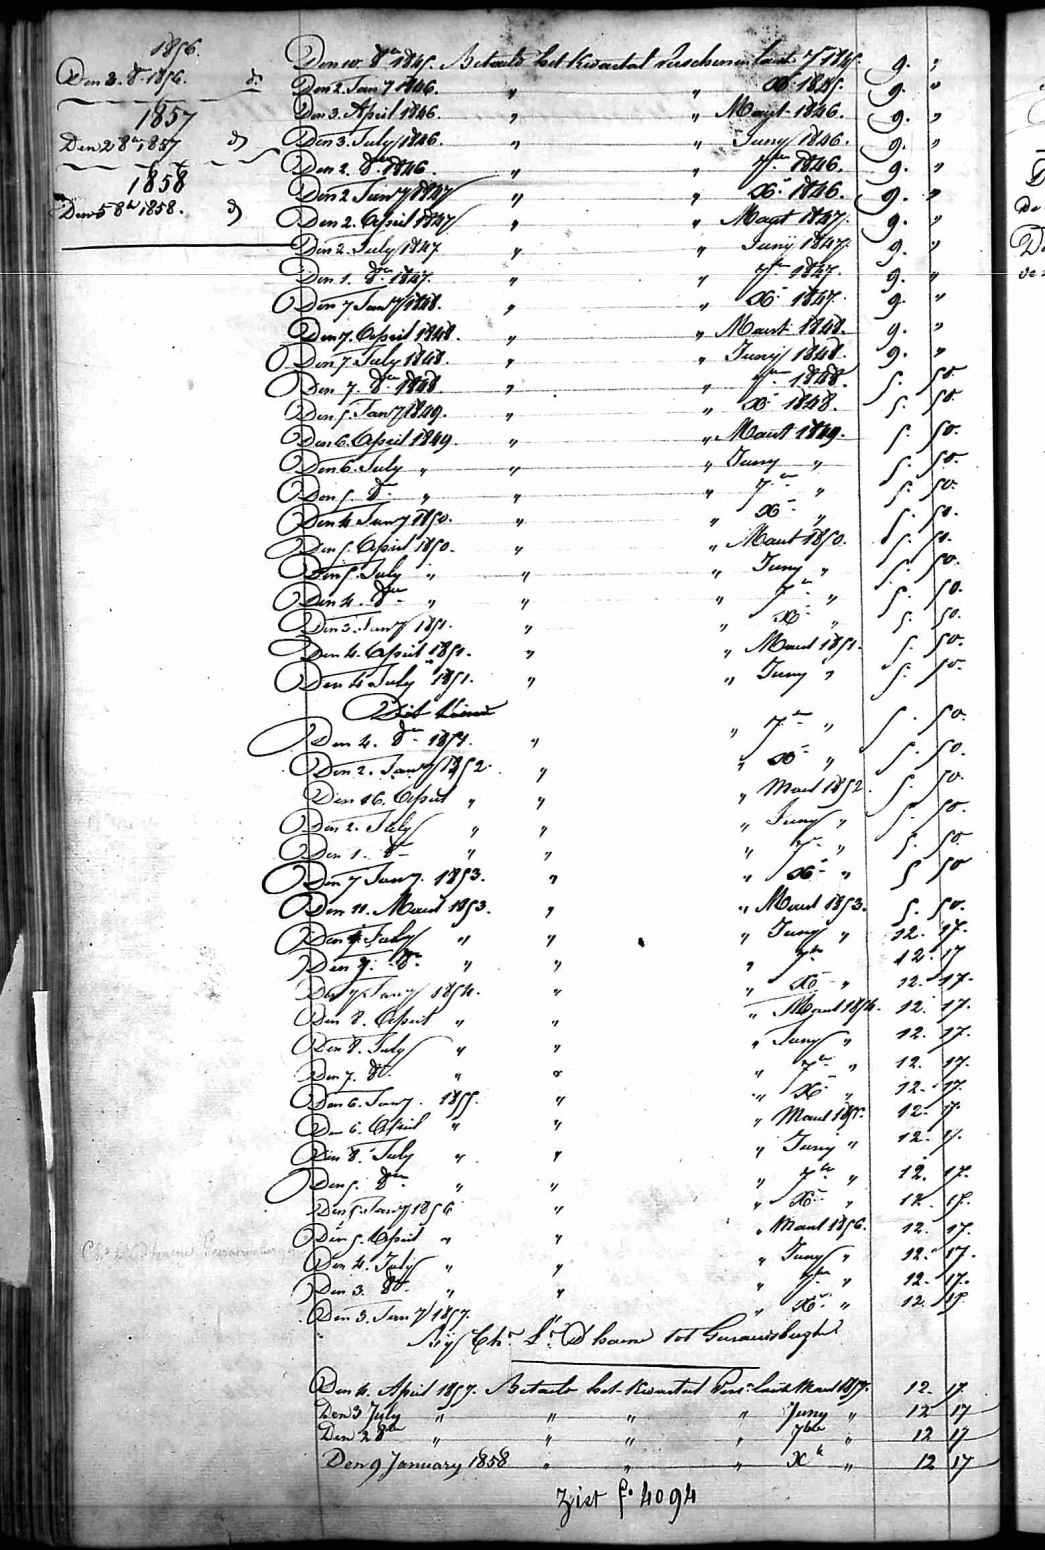 1856.
Den 2. 8r 1856. d
1857
Den 2 8r 1857 d
1858
Den 5 8r 1858. d
Den 10. 8r 1845. Betaelt het Kwartal verschenen laest 7r 1845. 9. "
Den 2. Jany 1846. " " Xr 1845. 9. "
Den 3. April 1846. " " Maert 1846. 9. "
Den 3. July 1846. " " Juny 1846. 9. "
Den 2. 8r 1846. " " 7r 1846. 9. "
Den 2 Jany 1847 " " Xr 1846. 9. "
Den 2. April 1847 " " Maert 1847. 9. "
Den 2. July 1847 " " Juny 1847. 9. "
Den 1. 8r 1847. " " 7r 1847. 9. "
Den 7 Jany 1848. " " Xr 1847. 9. "
Den 7. April 1848. " " Maert 1848. 9. "
Den 7 July 1848. " " Juny 1848. 9. "
Den 7. 8r 1848 " " 7r 1848. 5. 50.
Den 5. Jany 1849. " " Xr 1848. 5. 50.
Den 6. April 1849. " " Maert 1849. 5. 50.
Den 6. July " " " Juny " 5. 50.
Den 5. 8r " " " 7r " 5. 50.
Den 4 Jany 1850. " " Xr " 5. 50.
Den 5. April 1850. " " Maert 1850. 5. 50.
Den 5. July " " " Juny " 5. 50.
Den 4. 8r " " " 7r " 5. 50.
Den 3. Jany 1851. " " Xr " 5. 50.
Den 4. April 1851. " " Maert 1851. 5. 50.
Den 4 July 1851. " " Juny " 5. 50.
Den 4. 8r 1851. " " 7r " 5. 50.
Den 2. Jany 1852. " " Xr " 5. 50.
Den 16. April " " " Maert 1852. 5. 50.
Den 2. July " " " Juny " 5. 50.
Den 1. 8r " " " 7r " 5. 50.
Den 7 Jany. 1853. " " Xr " 5 50
Den 11. Maert 1853. " " Maert 1853. 5. 50.
Den July " " " Juny " 12. 17.
Den 7. 8r " " " 7r " 12. 17
Den 7 Jany 1854. " " Xr " 12. 17.
Den 8. April " " " Maert 1854. 12. 17.
Den 8. July " " " Juny " 12. 17.
Den 7. 8r " " " 7r " 12. 17.
Den 6. Jany. 1855. " " Xr " 12. 17.
Den 6. April " " " Maert 1855. 12. 17.
Den 8. July " " " Juny " 12. 17.
Den 5. 8r " " " 7r " 12. 17.
Den 5. Jany 1856 " " Xr " 12. 17.
Den 5. April " " " Maert 1856. 12. 17.
Den 4. July " " " Juny " 12. 17.
Den 3. 8r " " " 7r " 12. 17.
Den 3. Jany 1857. " " Xr " 12. 17.
Ch. Dhaene tot
Den 4. April 1857. Betaelt het Kwartal Vers. laest Maert 1857. 12. 17.
Den 3 July " " " " Juny " 12 17
Den 2 8re " " " " 7bre " 12 17
Den 9 January 1858 " " " Xr " 12 17
Ziet f° 4094